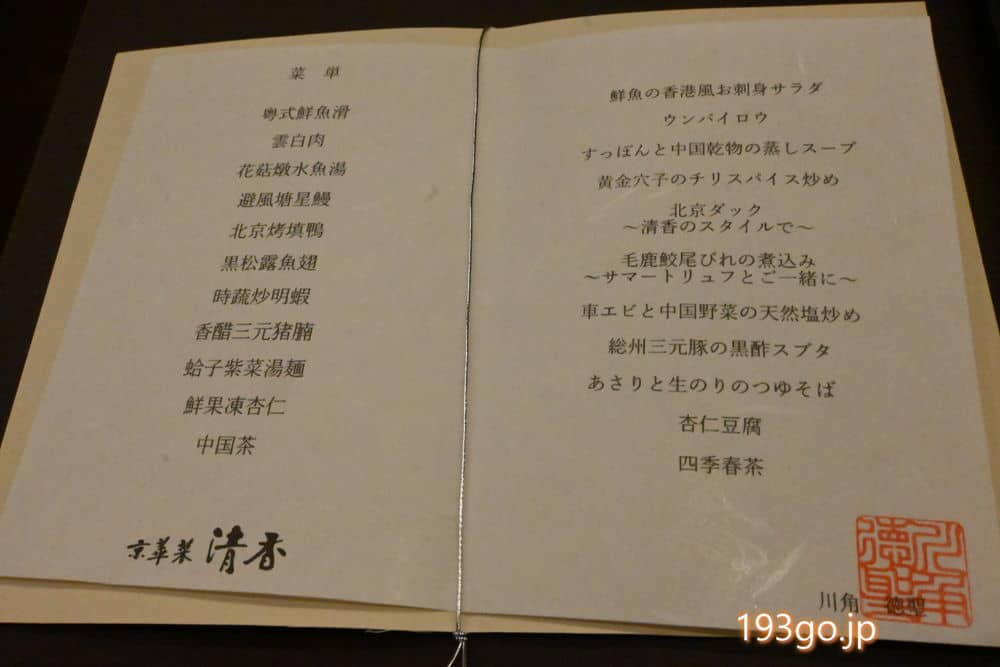 菜単
粤式鮮魚滑
雲白肉
花菇燉水魚湯
避風塘星鰻
北京烤填鴨
黒松露魚翅
時蔬炒明蝦
香醋三元猪腩
蛤子紫菜湯麺
鮮果凍杏仁
中国茶
京華菜 清香
鮮魚の香港風お刺身サラダ
ウンパイロウ
すっぽんと中国乾物の蒸しスープ
黄金穴子のチリスパイス炒め
北京ダック
～清香のスタイルで～
毛鹿鮫尾びれの煮込み
～サマートリュフとご一緒に～
車エビと中国野菜の天然塩炒め
総州三元豚の黒酢スブタ
あさりと生のりのつゆそば
杏仁豆腐
四季春茶
川角 徳聖
193go.jp